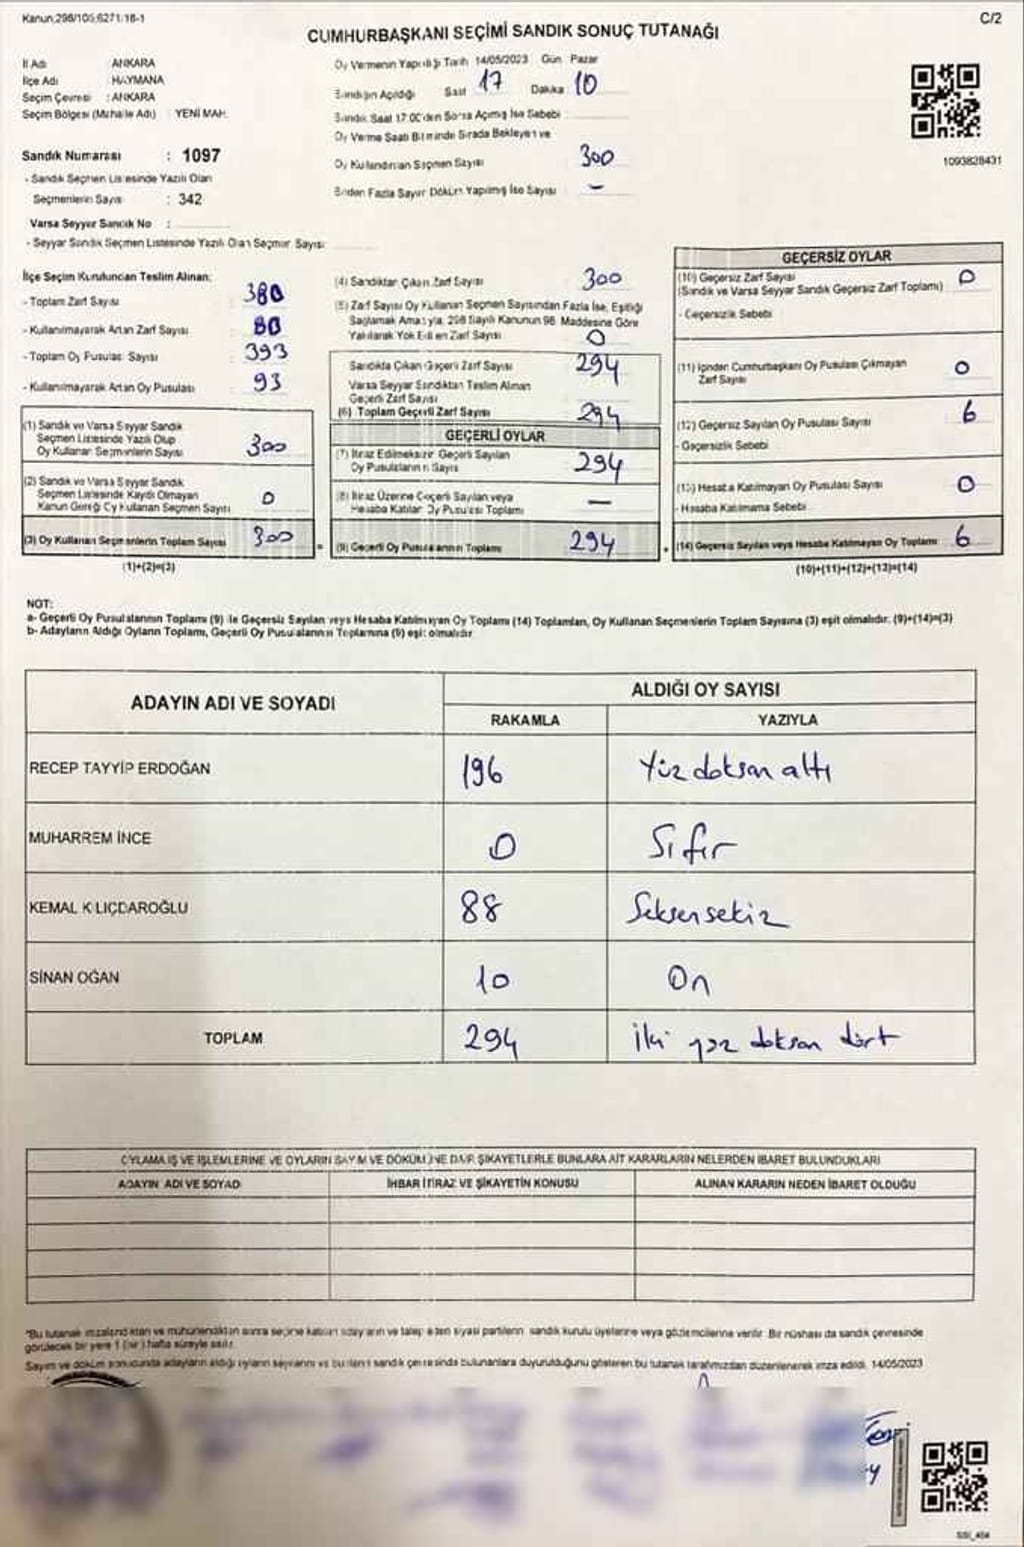 Kanun:298/105;6271/18-1
C/2
CUMHURBAŞKANI SEÇİMİ SANDIK SONUÇ TUTANAĞI
İl Adı ANKARA
İlçe Adı : HAYMANA
Seçim Çevresi : ANKARA
Seçim Bölgesi (Mahalle Adı) YENİ MAH.
Sandık Numarası : 1097
- Sandık Seçmen Listesinde Yazılı Olan
Seçmenlerin Sayısı : 342
Varsa Seyyar Sandık No :
- Seyyar Sandık Seçmen Listesinde Yazılı Olan Seçmen Sayısı:
Oy Vermenin Yapıldığı Tarih 14/05/2023 Gün Pazar
Sandığın Açıldığı Saat 17 Dakika 10
Sandık Saat 17:00'den Sonra Açılmış İse Sebebi :
Oy Verme Saati Bitiminde Sırada Bekleyen ve
Oy Kullandırılan Seçmen Sayısı 300
Birden Fazla Sayım Döküm Yapılmış İse Sayısı –
1093828431
İlçe Seçim Kurulundan Teslim Alınan:
- Toplam Zarf Sayısı 380
- Kullanılmayarak Artan Zarf Sayısı 80
- Toplam Oy Pusulası Sayısı 393
- Kullanılmayarak Artan Oy Pusulası 93
(1) Sandık ve Varsa Seyyar Sandık
Seçmen Listesinde Yazılı Olup
Oy Kullanan Seçmenlerin Sayısı 300
(2) Sandık ve Varsa Seyyar Sandık
Seçmen Listesinde Kaydı Olmayan
Kanun Gereği Oy Kullanan Seçmen Sayısı 0
(3) Oy Kullanan Seçmenlerin Toplam Sayısı 300
(1)+(2)=(3)
(4) Sandıktan Çıkan Zarf Sayısı 300
(5) Zarf Sayısı Oy Kullanan Seçmen Sayısından Fazla İse, Eşitliği
Sağlamak Amacıyla, 298 Sayılı Kanunun 98. Maddesine Göre
Yakılarak Yok Edilen Zarf Sayısı 0
Sandıkta Çıkan Geçerli Zarf Sayısı 294
Varsa Seyyar Sandıktan Teslim Alınan
Geçerli Zarf Sayısı
(6) Toplam Geçerli Zarf Sayısı 294
GEÇERLİ OYLAR
(7) İtiraz Edilmeksizin Geçerli Sayılan
Oy Pusulalarının Sayısı 294
(8) İtiraz Üzerine Geçerli Sayılan veya
Hesaba Katılan Oy Pusulası Toplamı –
(9) Geçerli Oy Pusulalarının Toplamı 294
GEÇERSİZ OYLAR
(10) Geçersiz Zarf Sayısı 0
(Sandık ve Varsa Seyyar Sandık Geçersiz Zarf Toplamı)
- Geçersizlik Sebebi
(11) İçinden Cumhurbaşkanı Oy Pusulası Çıkmayan
Zarf Sayısı 0
(12) Geçersiz Sayılan Oy Pusulası Sayısı 6
- Geçersizlik Sebebi
(13) Hesaba Katılmayan Oy Pusulası Sayısı 0
- Hesaba Katılmama Sebebi
(14) Geçersiz Sayılan veya Hesaba Katılmayan Oy Toplamı 6
(10)+(11)+(12)+(13)=(14)
NOT:
a- Geçerli Oy Pusulalarının Toplamı (9) ile Geçersiz Sayılan veya Hesaba Katılmayan Oy Toplamı (14) Toplamları, Oy Kullanan Seçmenlerin Toplam Sayısına (3) eşit olmalıdır. (9)+(14)=(3)
b- Adayların Aldığı Oyların Toplamı, Geçerli Oy Pusulalarının Toplamına (9) eşit olmalıdır.
ADAYIN ADI VE SOYADI
ALDIĞI OY SAYISI
RAKAMLA YAZIYLA
RECEP TAYYİP ERDOĞAN 196 Yüz doksan altı
MUHARREM İNCE 0 Sıfır
KEMAL KILIÇDAROĞLU 88 Seksen sekiz
SİNAN OĞAN 10 On
TOPLAM 294 İki yüz doksan dört
OYLAMA İŞ VE İŞLEMLERİNE VE OYLARIN SAYIM VE DÖKÜMÜNE DAİR ŞİKAYETLERLE BUNLARA AİT KARARLARIN NELERDEN İBARET BULUNDUKLARI
ADAYIN ADI VE SOYADI İHBAR İTİRAZ VE ŞİKAYETİN KONUSU ALINAN KARARIN NEDEN İBARET OLDUĞU
*Bu tutanak imzalandıktan ve mühürlendikten sonra seçime katılan adayların ve talep eden siyasi partilerin sandık kurulu üyelerine veya gözlemcilerine verilir. Bir nüshası da sandık çevresinde
görülecek bir yere 1 (bir) hafta süreyle asılır.
Sayım ve döküm sonucunda adayların aldığı oyların sayılarını ve bunların sandık çevresinde bulunanlara duyurulduğunu gösteren bu tutanak tarafımızdan düzenlenerek imza edildi. 14/05/2023